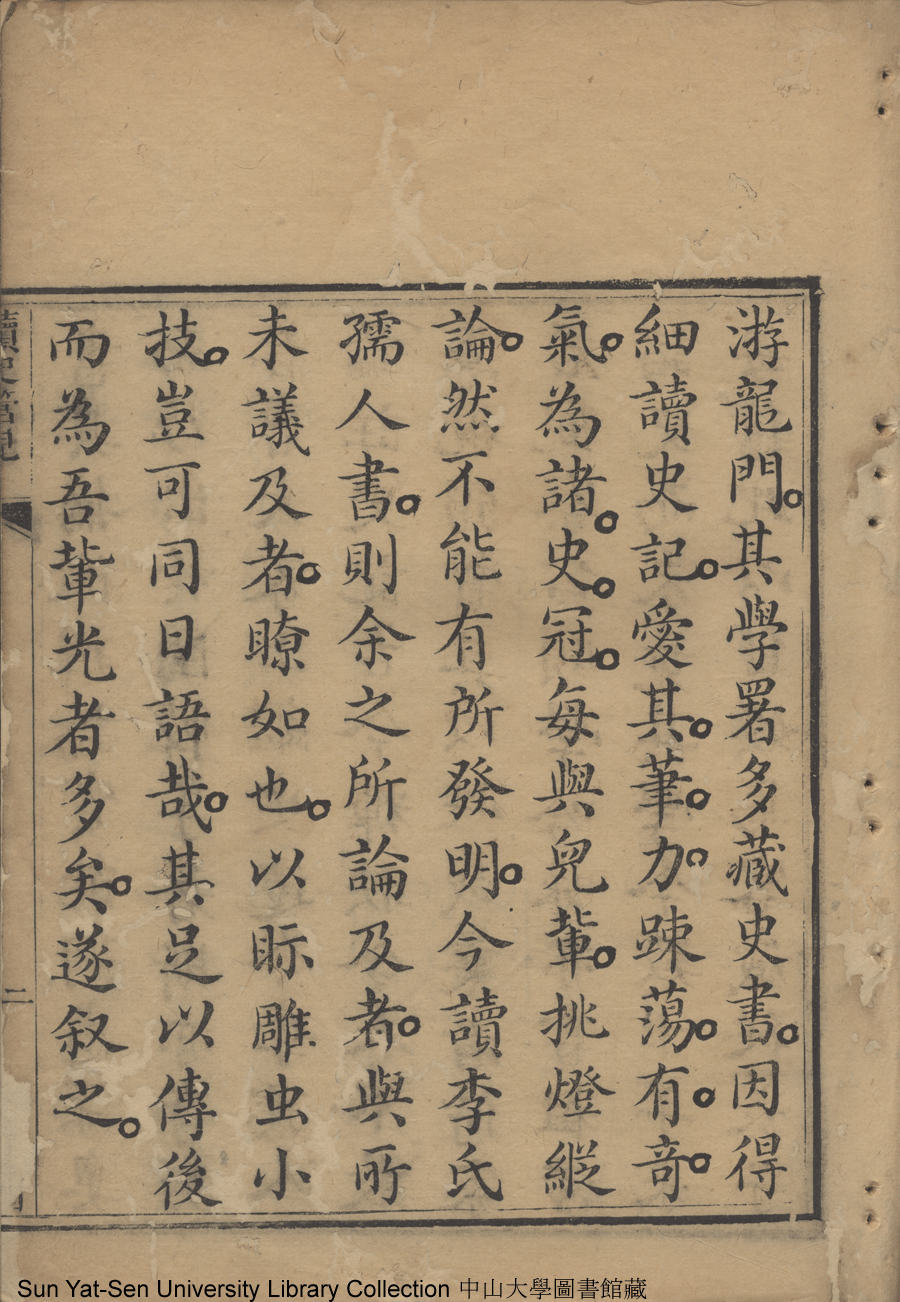 游龍門其學署多藏史書因得
細讀史記愛其筆力踈蕩有竒
氣為諸史冠每與兒輩挑燈縱
論然不能有所發明今讀李氏
孺人書則余之所論及者與所
未議及者瞭如也以眎雕虫小
技豈可同日語哉其足以傳後
而為吾輩光者多矣遂叙之
讀史管見
二
Sun Yat-Sen University Library Collection 中山大學圖書館藏